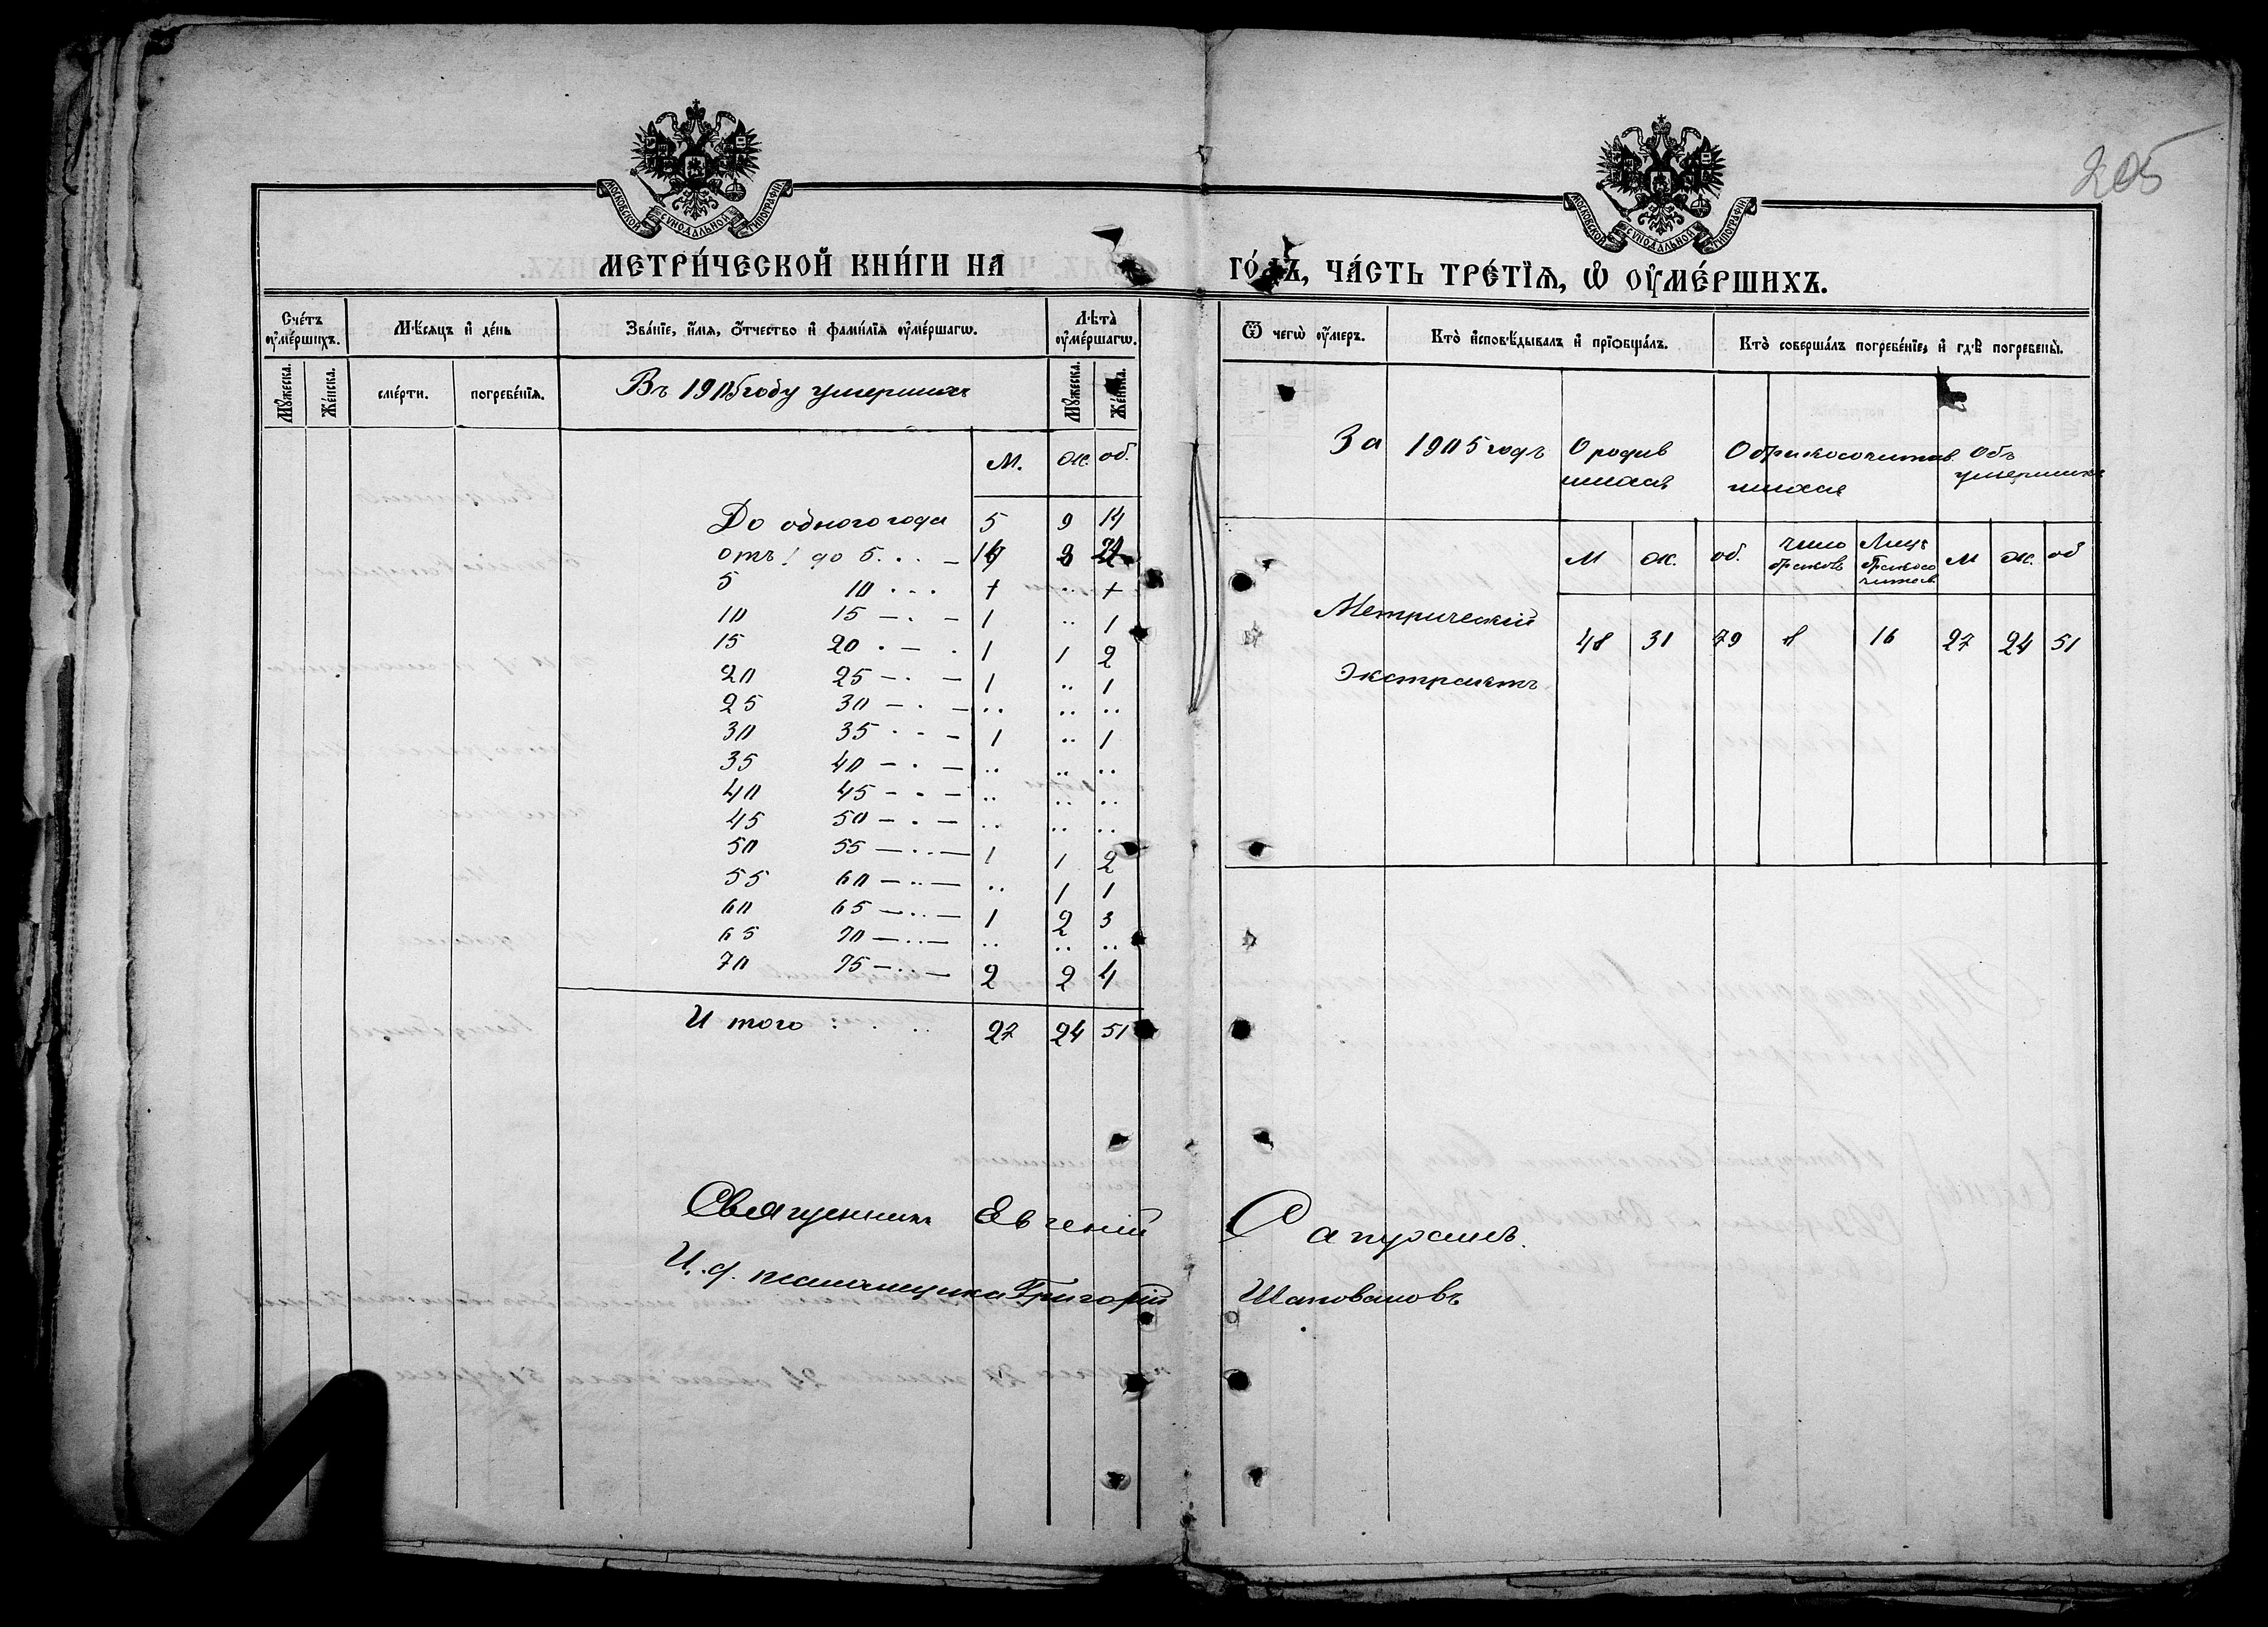 205
МОСКОВСКОЙ СУНОДАЛЬНОЙ ТИПОГРАФІИ
МОСКОВСКОЙ СУНОДАЛЬНОЙ ТИПОГРАФІИ
МЕТРИ́ЧЕСКОЙ КНИ́ГИ НА
ГО́ДЪ, ЧА́СТЬ ТРЕ́ТІѦ, Ѡ҆ ОУ҆МЕ́РШИХЪ.
Сче́тъ оу҆ме́ршихъ.
Мѣ́сяцъ и҆ де́нь
Зва́ніе, и҆́мѧ, ѻ҆́тчество и҆ фами́лїѧ оу҆ме́ршагѡ.
Лѣ̀та оу҆ме́ршагѡ.
Мꙋ́жеска.
Же́нска.
сме́рти.
погребе́нїѧ.
Въ 1905 году умершихъ
Мꙋ́жеска.
Же́нска.
М. Ж. об.
До одного года 5 9 14
отъ 1 до 5 . . . —
5 10 . . . + .. +
10 15 — . — 1 .. 1
15 20 . — . 1 1 2
20 25 — . — 1 .. 1
25 30 — . — .. .. ..
30 35 . . — 1 .. 1
35 40 — . — .. .. ..
40 45 — . — .. .. ..
45 50 — . — .. .. ..
50 55 — .. — 1 1 2
55 60 — .. — .. 1 1
60 65 — .. — 1 2 3
65 70 — .. — .. .. ..
70 75 — .. — 2 2 4
И того : . .. 27 24 51
Священникъ Евгеній
И. д. псаломщика Григорій
Ѿ чегѡ̀ оу҆́меръ.
Кто̀ и҆сповѣ́дывалъ и҆ прїѡбща́лъ.
Кто̀ соверша́лъ погребе́нїе, и҆ гдѣ̀ погребены̀.
За 1905 годъ
О родив
шихся
О бракосочетав
шихся
Объ
умершихъ
М Ж. об.
Число
браковъ
Лицъ
бракосо
четав.
М Ж. об
Метрическій
Экстрактъ
48 31 79 8 16 27 24 51
Шаповаловъ